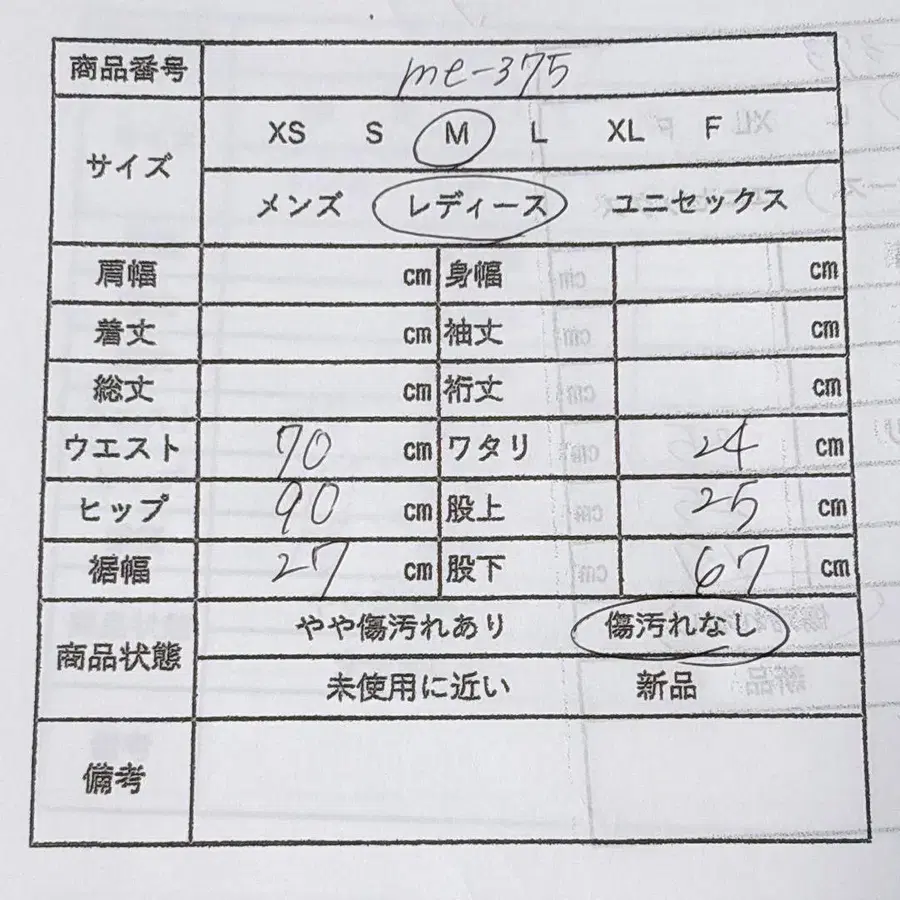 商品番号 me-375
サイズ XS S M L XL F
メンズ レディース ユニセックス
肩幅 cm 身幅 cm
着丈 cm 袖丈 cm
総丈 cm 裄丈 cm
ウエスト 70 cm ワタリ 24 cm
ヒップ 90 cm 股上 25 cm
裾幅 27 cm 股下 67 cm
商品状態 やや傷汚れあり 傷汚れなし
未使用に近い 新品
備考